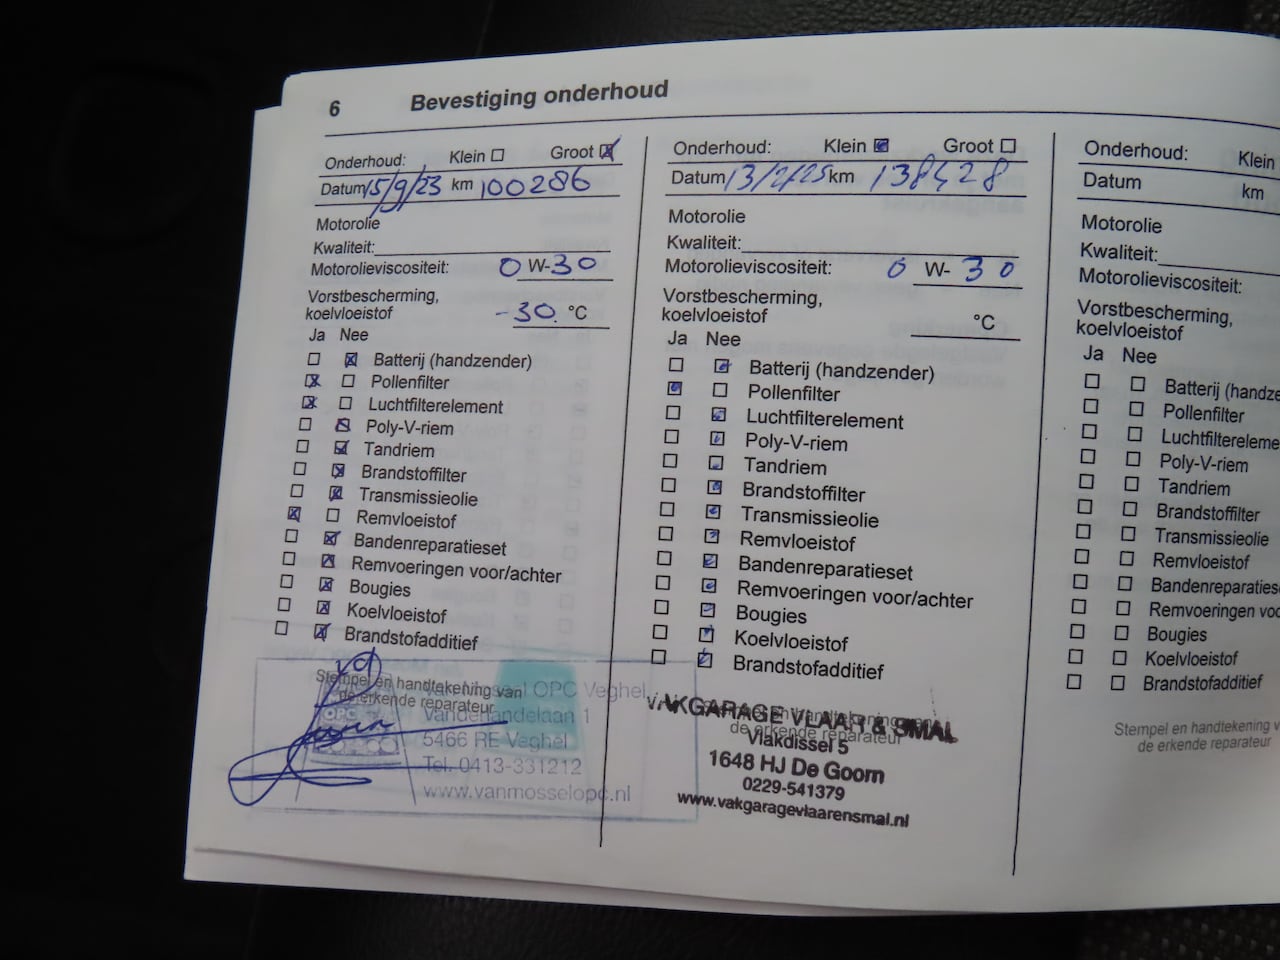 6 Bevestiging onderhoud
Onderhoud: Klein Groot
Datum 15/9/23 km 100286
Motorolie
Kwaliteit:
Motorolieviscositeit: 0 W-30
Vorstbescherming,
koelvloeistof -30. °C
Ja Nee
Batterij (handzender)
Pollenfilter
Luchtfilterelement
Poly-V-riem
Tandriem
Brandstoffilter
Transmissieolie
Remvloeistof
Bandenreparatieset
Remvoeringen voor/achter
Bougies
Koelvloeistof
Brandstofadditief
Stempel en handtekening van
de erkende reparateur
OPC
OPC Veghel
Vandenhendelaan 1
5466 RE Veghel
Tel. 0413-331212
www.vanmosselopc.nl
Onderhoud: Klein Groot
Datum 13/2/25 km 138428
Motorolie
Kwaliteit:
Motorolieviscositeit: 0 W-30
Vorstbescherming,
koelvloeistof °C
Ja Nee
Batterij (handzender)
Pollenfilter
Luchtfilterelement
Poly-V-riem
Tandriem
Brandstoffilter
Transmissieolie
Remvloeistof
Bandenreparatieset
Remvoeringen voor/achter
Bougies
Koelvloeistof
Brandstofadditief
Stempel en handtekening van
de erkende reparateur
VAKGARAGE VLAAR & SMAL
Vlakdissel 5
1648 HJ De Goorn
0229-541379
www.vakgaragevlaarensmal.nl
Onderhoud: Klein
Datum km
Motorolie
Kwaliteit:
Motorolieviscositeit:
Vorstbescherming,
koelvloeistof
Ja Nee
Batterij (handze
Pollenfilter
Luchtfiltereleme
Poly-V-riem
Tandriem
Brandstoffilter
Transmissieolie
Remvloeistof
Bandenreparaties
Remvoeringen vo
Bougies
Koelvloeistof
Brandstofadditief
Stempel en handtekening v
de erkende reparateur